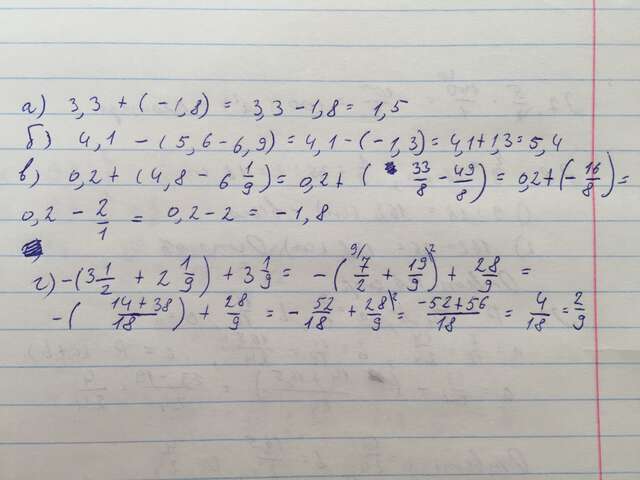 а) 3,3 + (-1,8) = 3,3 - 1,8 = 1,5
б) 4,1 - (5,6 - 6,9) = 4,1 - (-1,3) = 4,1 + 1,3 = 5,4
в) 0,2 + (4,8 - 6 1/9) = 0,2 + ( 33/8 - 49/8) = 0,2 + (- 16/8) =
0,2 - 2/1 = 0,2 - 2 = -1,8
г) -(3 1/2 + 2 1/9) + 3 1/9 = -( 9/ 7/2 + 19/9 \2 ) + 28/9 =
-( 14+38/18 ) + 28/9 = - 52/18 + 28/9 \2 = -52+56/18 = 4/18 = 2/9